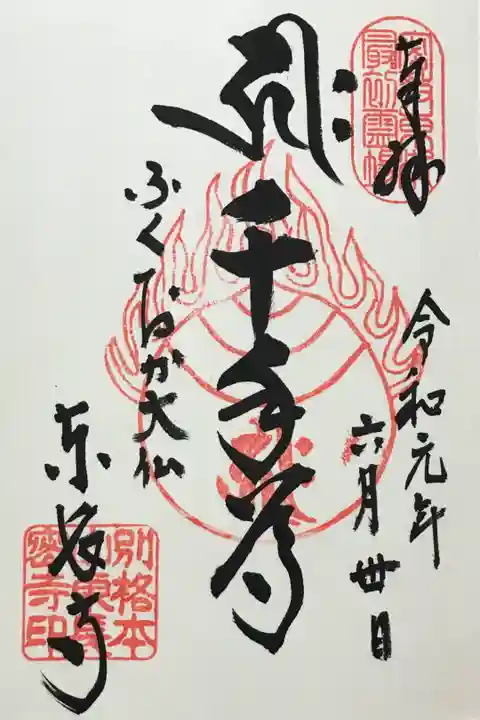 奉拝
令和元年
六月卅日
千手尊
ふくおか大仏
東長寺
別格本
山東長
密寺印